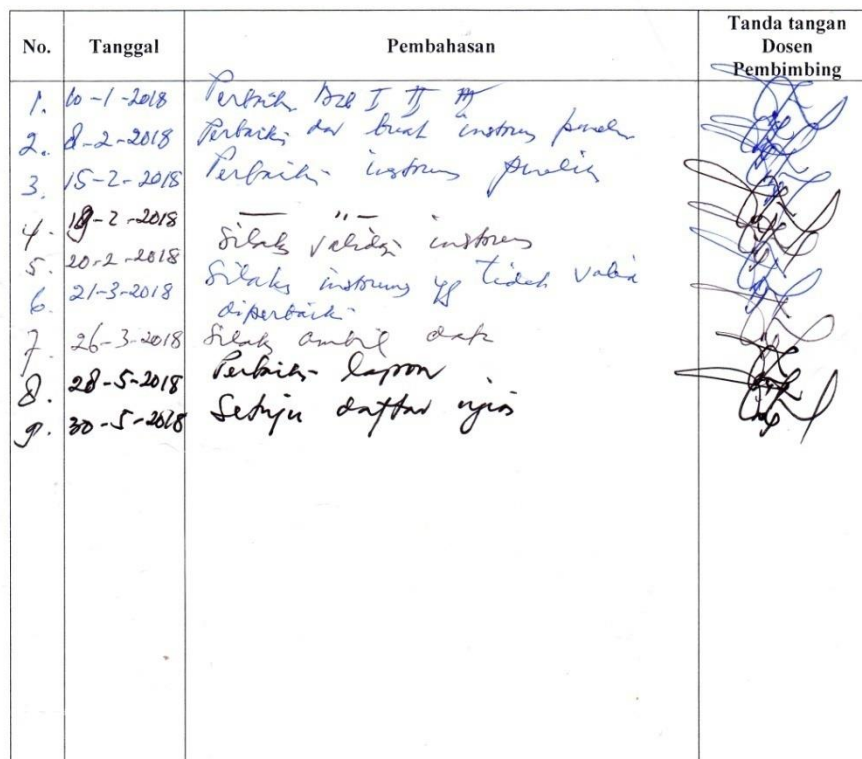 No. Tanggal Pembahasan Tanda tangan Dosen Pembimbing
1. 10-1-2018 Perbaiki Bab I II III
2. 8-2-2018 Perbaiki dan buat instrumen
3. 15-2-2018 Perbaiki instrumen
4. 18-2-2018 — " —
5. 20-2-2018 Silak validasi instrumen
6. 21-3-2018 instrumen yg tidak valid
diperbaiki
7. 26-3-2018 ambil data
8. 28-5-2018 Perbaiki laporan
9. 30-5-2018 Setuju daftar ujian